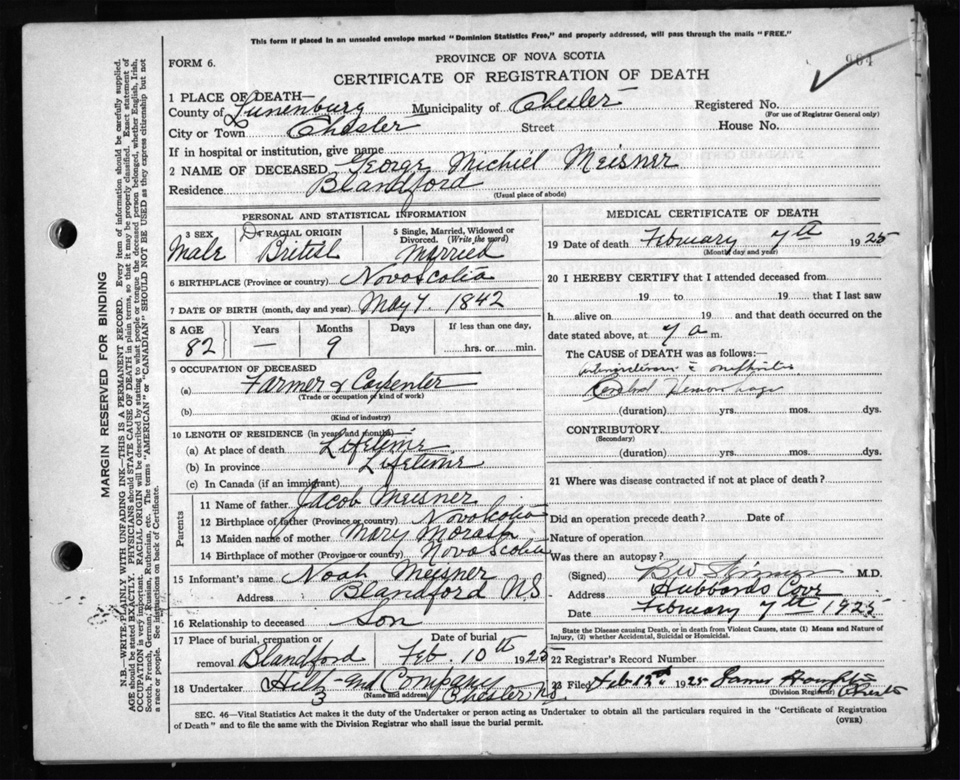 This form if placed in an unsealed envelope marked "Dominion Statistics Free," and properly addressed, will pass through the mails "FREE."
FORM 6.
PROVINCE OF NOVA SCOTIA
CERTIFICATE OF REGISTRATION OF DEATH
1 PLACE OF DEATH—
County of Lunenburg Municipality of Chester Registered No.
(For use of Registrar General only)
City or Town Chester Street House No.
If in hospital or institution, give name
2 NAME OF DECEASED George Michiel Meisner
Residence Blandford
(Usual place of abode)
PERSONAL AND STATISTICAL INFORMATION
3 SEX
Male
RACIAL ORIGIN
British
5 Single, Married, Widowed or Divorced. (Write the word)
Married
6 BIRTHPLACE (Province or country) Novoscotia
7 DATE OF BIRTH (month, day and year) May 7. 1842
8 AGE Years Months Days If less than one day,
82 — 9 hrs. or min.
9 OCCUPATION OF DECEASED
(a) Farmer & Carpenter
(Trade or occupation or kind of work)
(b)
(Kind of industry)
10 LENGTH OF RESIDENCE (in years and months)
(a) At place of death Lifetime
(b) In province Lifetime
(c) In Canada (if an immigrant)
Parents
11 Name of father Jacob Meisner
12 Birthplace of father (Province or country) Novo Scotia
13 Maiden name of mother Mary Morash
14 Birthplace of mother (Province or country) Novo Scotia
15 Informant's name Noah Meisner
Address Blandford NS
16 Relationship to deceased Son
17 Place of burial, cremation or removal Blandford
Date of burial Feb. 10th 1925
18 Undertaker Hiltz and Company
(Name and address) Chester NS
MEDICAL CERTIFICATE OF DEATH
19 Date of death February 7th 1925
(Month, day and year)
20 I HEREBY CERTIFY that I attended deceased from
19 to 19 that I last saw
h alive on 19 and that death occurred on the
date stated above, at 7 a m.
The CAUSE of DEATH was as follows:—
Hemorrhage
(duration) yrs. mos. dys.
CONTRIBUTORY
(Secondary)
(duration) yrs. mos. dys.
21 Where was disease contracted if not at place of death?
Did an operation precede death? Date of
Nature of operation
Was there an autopsy?
(Signed) M.D.
Address Hubbards Cove
Date February 7th 1925
State the Disease causing Death, or in death from Violent Causes, state (1) Means and Nature of Injury, (2) whether Accidental, Suicidal or Homicidal.
22 Registrar's Record Number
23 Filed Feb 12th 1925 James
(Division Registrar) Chester
SEC. 46—Vital Statistics Act makes it the duty of the Undertaker or person acting as Undertaker to obtain all the particulars required in the "Certificate of Registration
of Death" and to file the same with the Division Registrar who shall issue the burial permit.
(OVER)
MARGIN RESERVED FOR BINDING
N.B.—WRITE PLAINLY WITH UNFADING INK—THIS IS A PERMANENT RECORD. Every item of information should be carefully supplied.
AGE should be stated EXACTLY. PHYSICIANS should STATE CAUSE OF DEATH in plain terms, so that it may be properly classified. Exact statement of
OCCUPATION is very important. RACIAL ORIGIN will be described by stating to what people or tongue the deceased person belonged, whether English, Irish,
Scotch, French, German, Russian, Ruthenian, etc. The terms "AMERICAN" or "CANADIAN" SHOULD NOT BE USED as they express citizenship but not
a race or people. See instructions on back of Certificate.